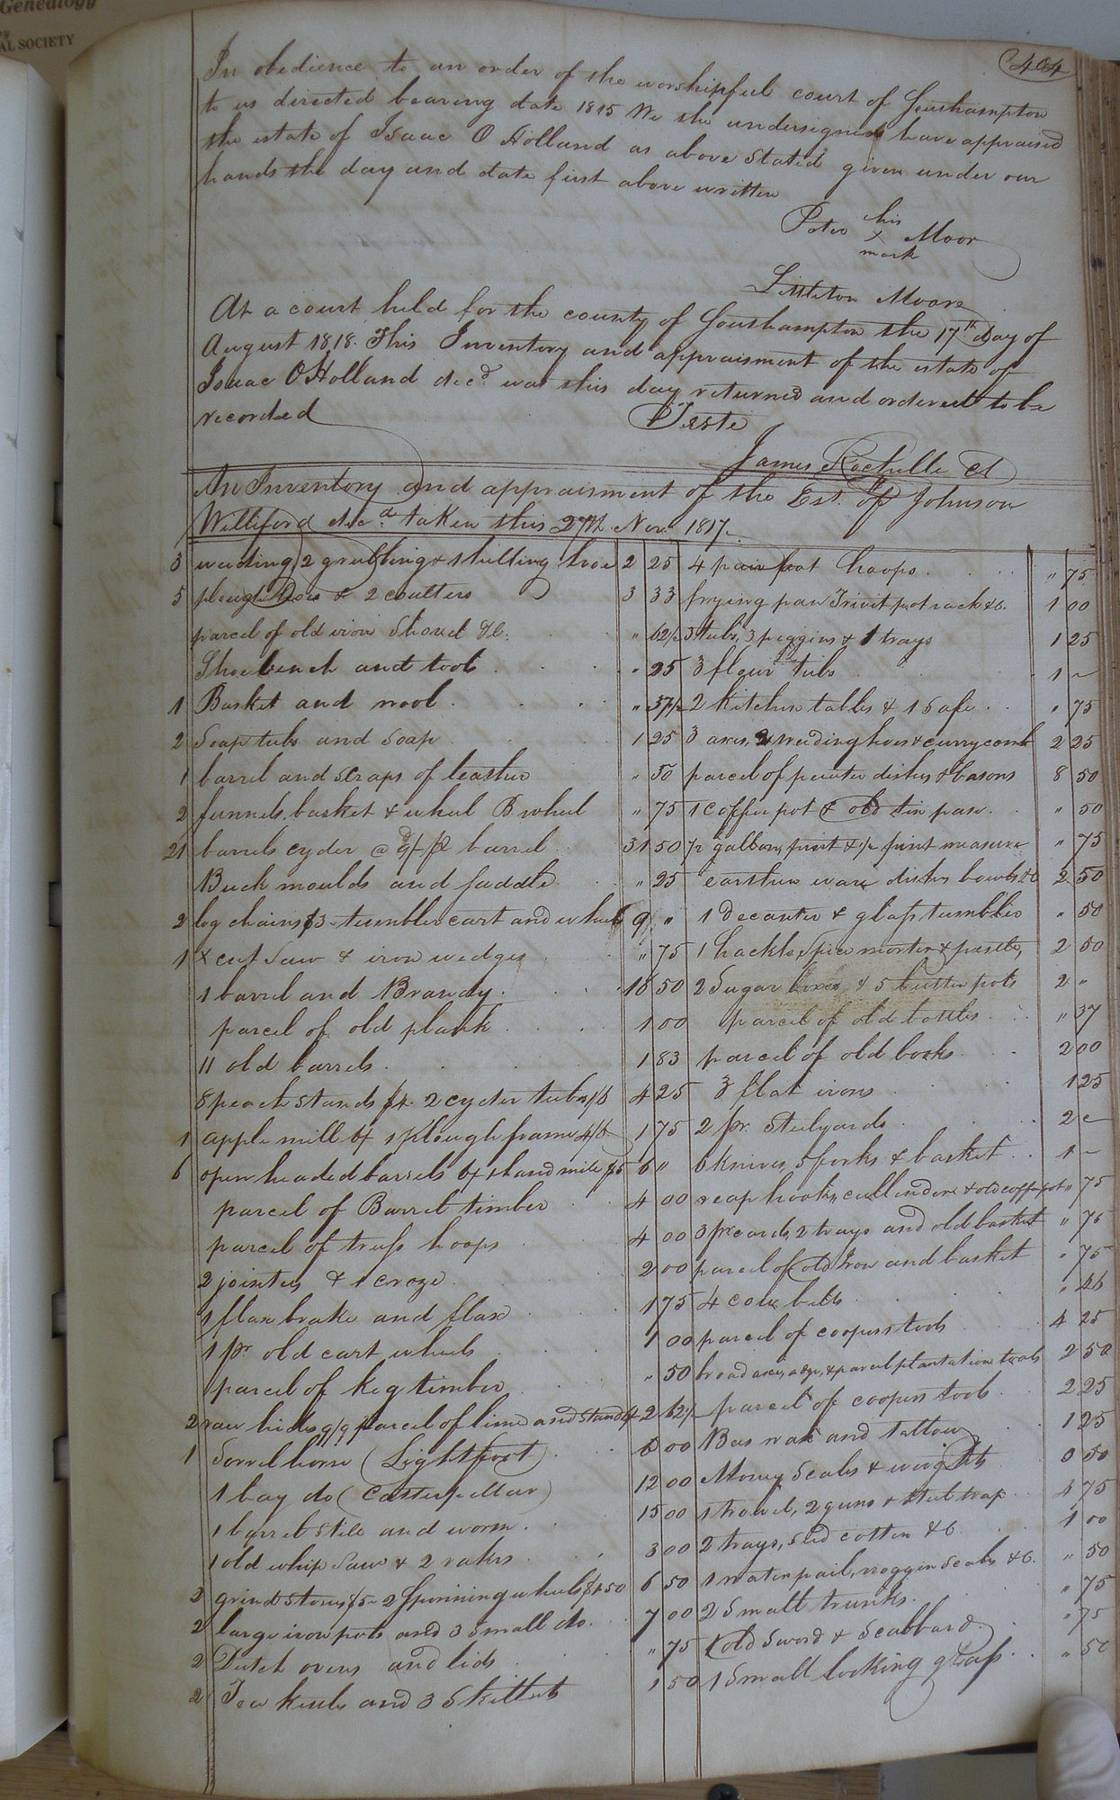 Genealogy
AL SOCIETY
404
In obedience to an order of the worshipfull court of Southampton
to us directed bearing date 1815 We the undersigned have appraised
the estate of Isaac O Holland as above Stated given under our
hands the day and date first above written
Peter his Moor
x
mark
Littleton Moore
At a court held for the county of Southampton the 17th day of
August 1818. This Inventory and appraisment of the estate of
Isaac O Holland decd was this day returned and ordered to be
recorded Teste
James Rochelle Cl
An Inventory and appraisment of the Est. of Johnson
Williford decd taken this 27th Nov. 1817.
3 weeding 2 grubbing & 1 hilling hoe 2 25
5 plough hoes & 2 coulters 3 33
parcel of old iron Shovel &c. " 62½
Shoe bench and tools " 25
1 Basket and wool " 37½
2 Soap tubs and Soap 1 25
1 barrel and scraps of leather " 50
2 funnels, basket & wheel B wheel " 75
21 barrels cyder @ barrel 31 50
Buck moulds and saddle " 25
2 log chains $3 - tumbler cart and wheels 9 "
1 x cut Saw & iron wedges " 75
1 barrel and Brandy 18 50
parcel of old plank 1 00
11 old barrels 1 83
8 peach stands $4. 2 cyder tubs 4 25
1 apple mill 1 Plough frame 1 75
6 open headed barrels 6/ 1 hand mill $5 6 "
parcel of Barrel timber 4 00
parcel of truss hoops 4 00
2 jointers & 1 croze 2 00
1 flax brake and flax 1 75
1 pr old cart wheels 1 00
parcel of keg timber " 50
2 raw hides 9/9 parcel of lime and stand 2 62½
1 Sorrel horse (Lightfoot) 6 00
1 bay do 12 00
1 barrel still and worm 15 00
1 old whip Saw & 2 rakes 3 00
2 grind stones $5 - 2 Spinning wheels $1.50 6 50
2 large iron pots and 3 Small do. 7 00
2 Dutch ovens and lids " 75
2 Tea kettles and 3 Skillets 1 50
4 pair pot hooks " 75
frying pan Trivit pot rack &c. 1 00
3 tubs, 3 piggins & 1 trays 1 25
3 flour tubs 1 ~
2 Kitchen tables & 1 Safe " 75
3 axes, 2 weeding hoes & curry comb 2 25
parcel of pewter dishes & basons 8 50
1 Coffee pot & old tin pan " 50
½ gallon, pint & ½ pint measure " 75
earthen ware dishes bowls &c 2 50
1 Decanter & glass tumbler " 50
1 hackle, spice mortar & pestle, 2 50
2 Sugar boxes & 5 butter pots 2 "
parcel of old bottles " 37
parcel of old books 2 00
3 flat irons 1 25
2 pr. Stilyards 2
6 knives, 5 forks & basket 1 ~
reap hooks, cullender & old coffee pot " 75
3 pr cards, 2 trays and old basket " 75
parcel of old Iron and basket " 75
4 cow bells
parcel of coopers tools 4 25
broad axes, adze, & parcel plantation tools 2 50
parcel of coopers tools 2 25
Bees wax and tallow 1 25
Money Scales & weights 0 50
1 trowel, 2 guns & steel trap 75
2 trays, seed cotten &c 1 00
1 water pail, noggin Seals &c. " 50
2 Small trunks " 75
1 old Sword & Scabbard " 75
1 Small looking glass " 50